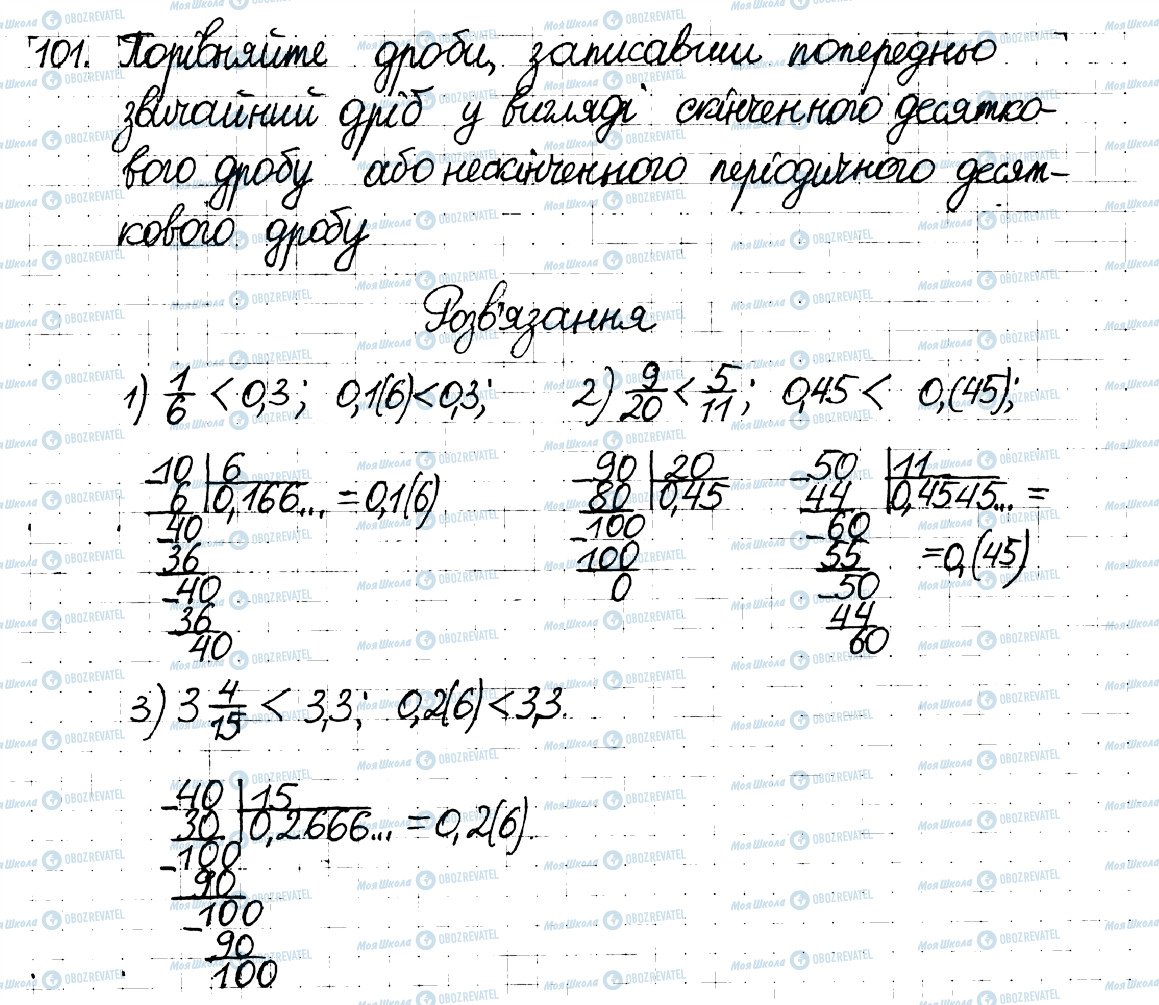 101. Порівняйте дроби, записавши попередньо
звичайний дріб у вигляді скінченного десятко-
вого дробу або нескінченного періодичного десят-
кового дробу
Розв'язання
1) 1/6 < 0,3; 0,1(6) < 0,3; 2) 9/20 < 5/11; 0,45 < 0,(45);
-10 | 6
6 | 0,166... = 0,1(6)
-40
36
-40
36
40
-90 | 20
80 | 0,45
-100
100
0
-50 | 11
44 | 0,4545... =
-60 = 0,(45)
55
-50
44
60
3) 3 4/15 < 3,3; 0,2(6) < 3,3.
-40 | 15
30 | 0,2666... = 0,2(6).
-100
90
-100
90
100
Моя Школа OBOZREVATEL